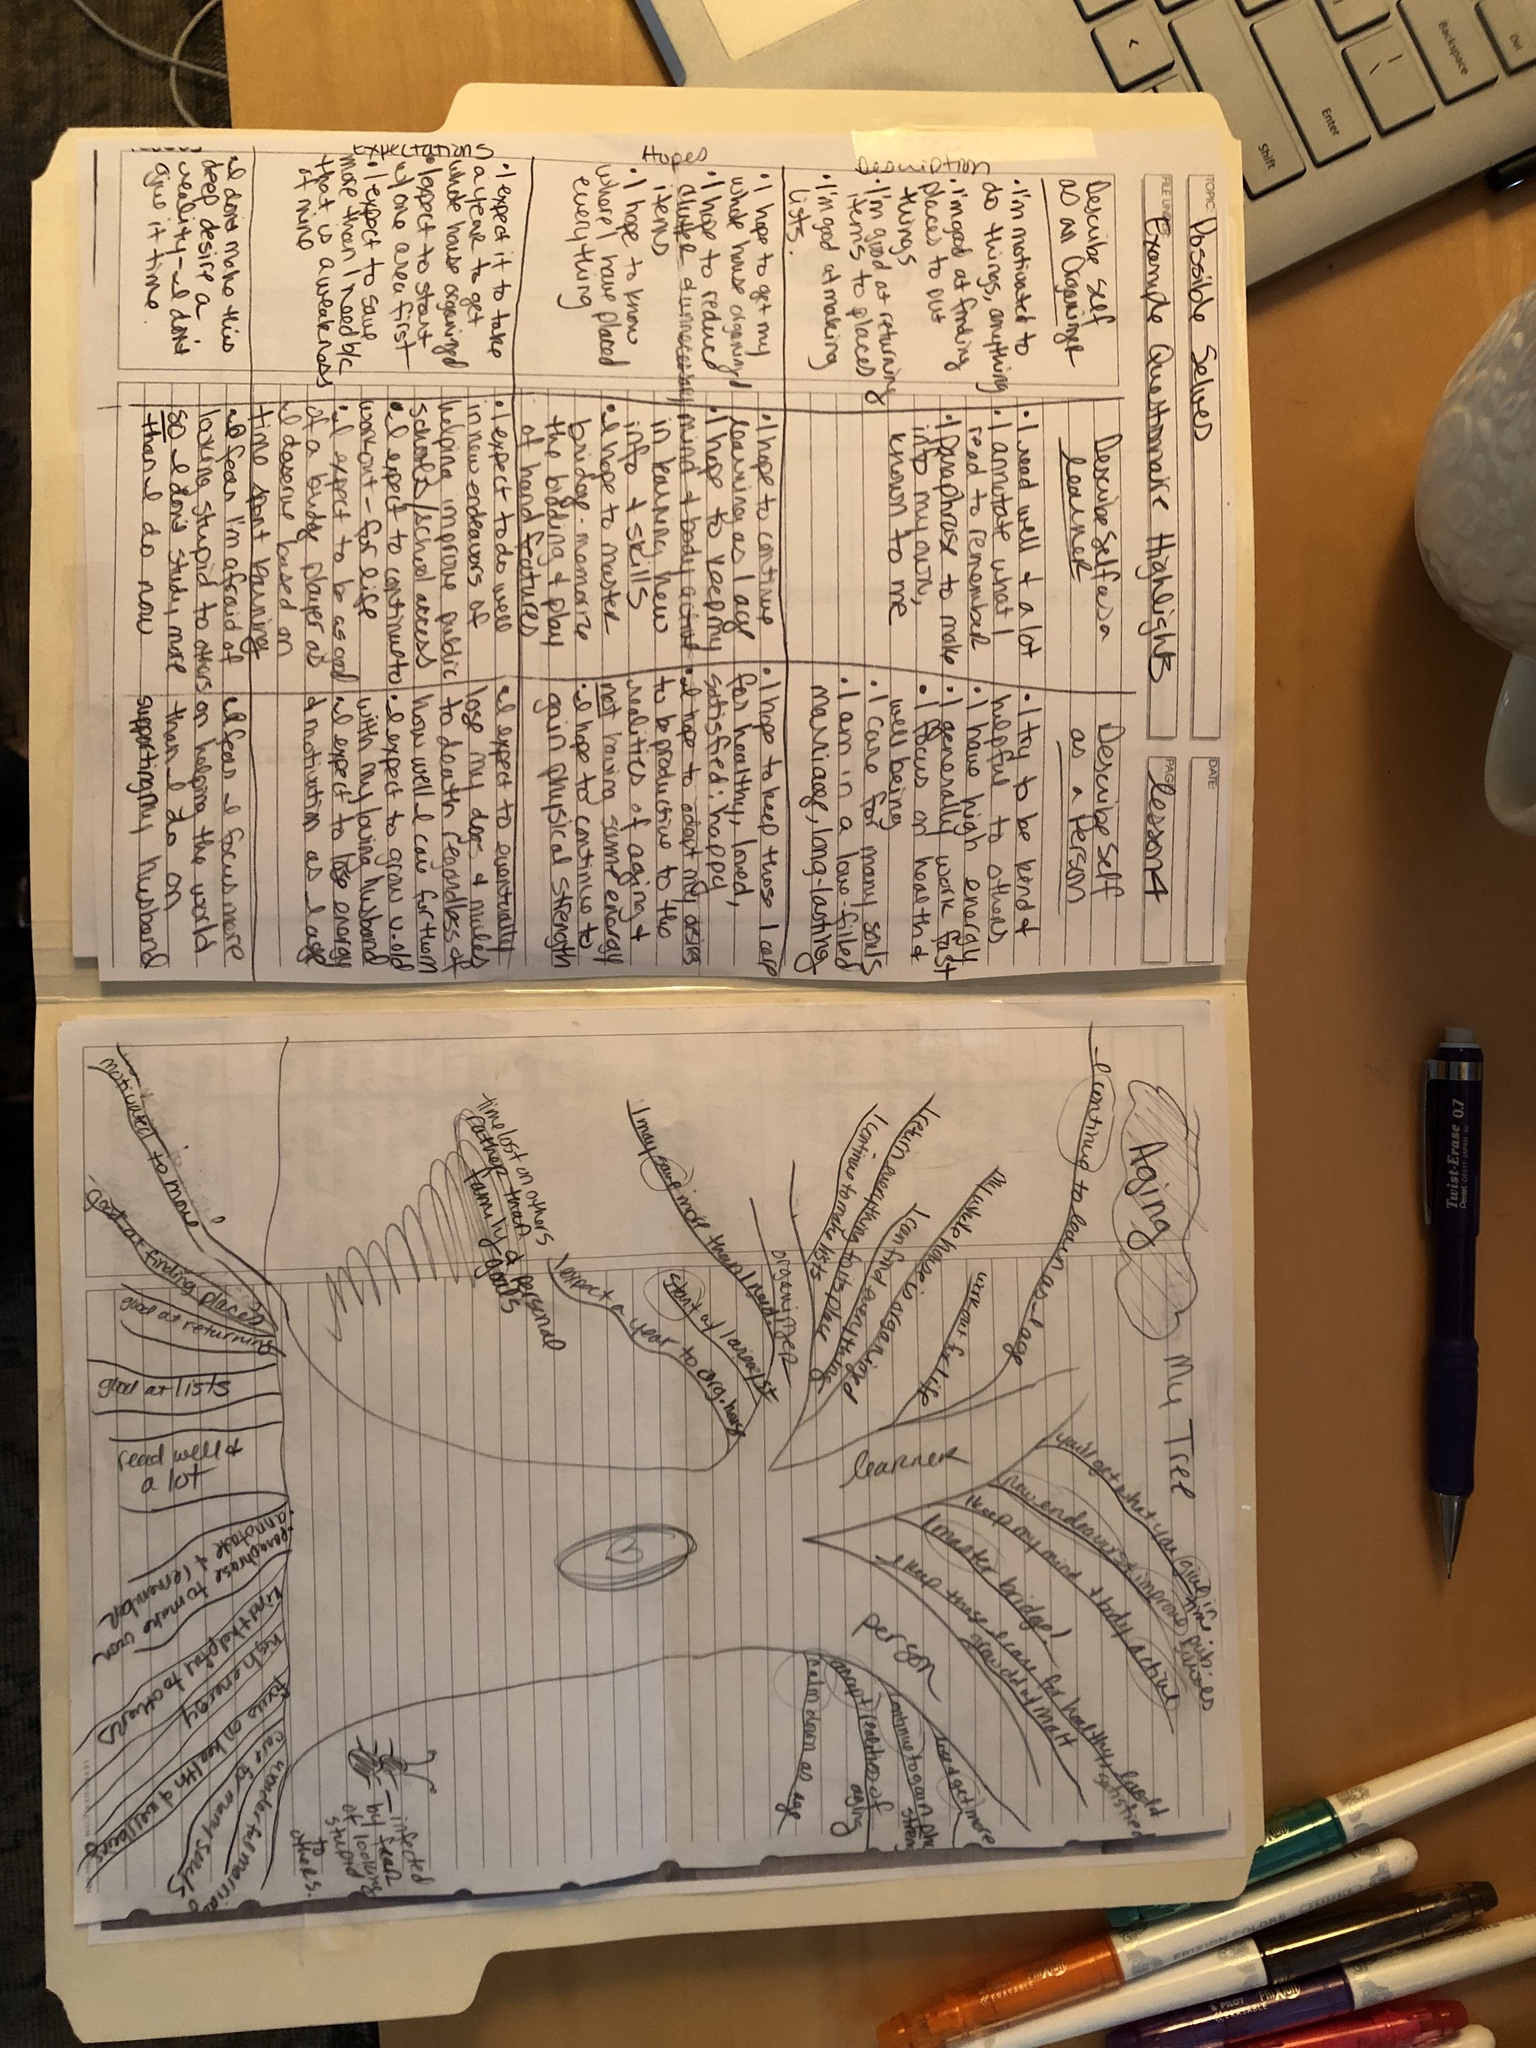 TOPIC: Possible Solves
DATE:
FILE UNDER: Example Questionnaire Highlights
PAGE: lesson 4
Describe Self
as an Organizer
Describe Self as a
learner
Describe Self
as a Person
Description
• I'm motivated to
do things, anything
• I'm good at finding
places to put
things
• I'm good at returning
items to places
• I'm good at making
lists.
• I read well & a lot
• I annotate what I
read to remember
• I paraphrase to make
into my own,
known to me
• I try to be kind &
helpful to others
• I have high energy
• I generally work fast
• I focus on health &
well being
• I care for many souls
• I am in a love-filled
marriage, long-lasting
Hopes
• I hope to get my
whole house organized
• I hope to reduce
clutter & unnecessary
items
• I hope to know
where I have placed
everything
• I hope to continue
learning as I age
• I hope to keep my
mind & body active
in learning new
info & skills
• I hope to master
bridge - memorize
the bidding & play
of hand features
• I hope to keep those I care
for healthy, loved,
satisfied, happy
• I hope to adapt my desires
to be productive to the
realities of aging &
not having same energy
• I hope to continue to
gain physical strength
Expectations
• I expect it to take
a year to get
whole house organized
• I expect to start
w/ one area first
• I expect to save
more than I need b/c
that is a weakness
of mine
• I expect to do well
in new endeavors of
helping improve public
schools/school access
• I expect to continue to
workout - for life
• I expect to be as good
of a bridge player as
I deserve based on
time spent learning
• I expect to eventually
lose my dogs & mules
to death regardless of
how well I care for them
• I expect to grow v. old
with my loving husband
• I expect to lose energy
& motivation as I age
I don't make this
deep desire a
reality - I don't
give it time.
I fear I'm afraid of
looking stupid to others
so I don't study more
than I do now
I fear I focus more
on helping the world
than I do on
supporting my husband
Aging
My Tree
I continue to learn as I age
workout for life
My whole house is organized
I can find everything
I return everything to its place
I continue to make lists
organizer
I may save more than I need
start w/ 1 area 1st
I expect a year to org. house
time lost on others
rather than
family & personal
goals
learner
you'll get what you give in
time
new endeavors improve public
schools
I keep my mind & body active
I master bridge!
I keep those I care for healthy, loved
satisfied
grow old w/ Matt
person
lose & get more
continue to gain phy.
adapt realities of
aging
calm down as
age
infected
by fear
of looking
stupid
to
others.
motivated at more
good at finding places
good at returning
good at lists
read well &
a lot
annotate & remember
paraphrase to make own
kind & helpful to others
high energy
focus on health & wellbeing
care for many souls
wonderful
Backspace
Del
Enter
Shift
Twist-Erase 0.7
Pentel
JAPAN
FRIXION COLORS
PILOT
ERASABLE